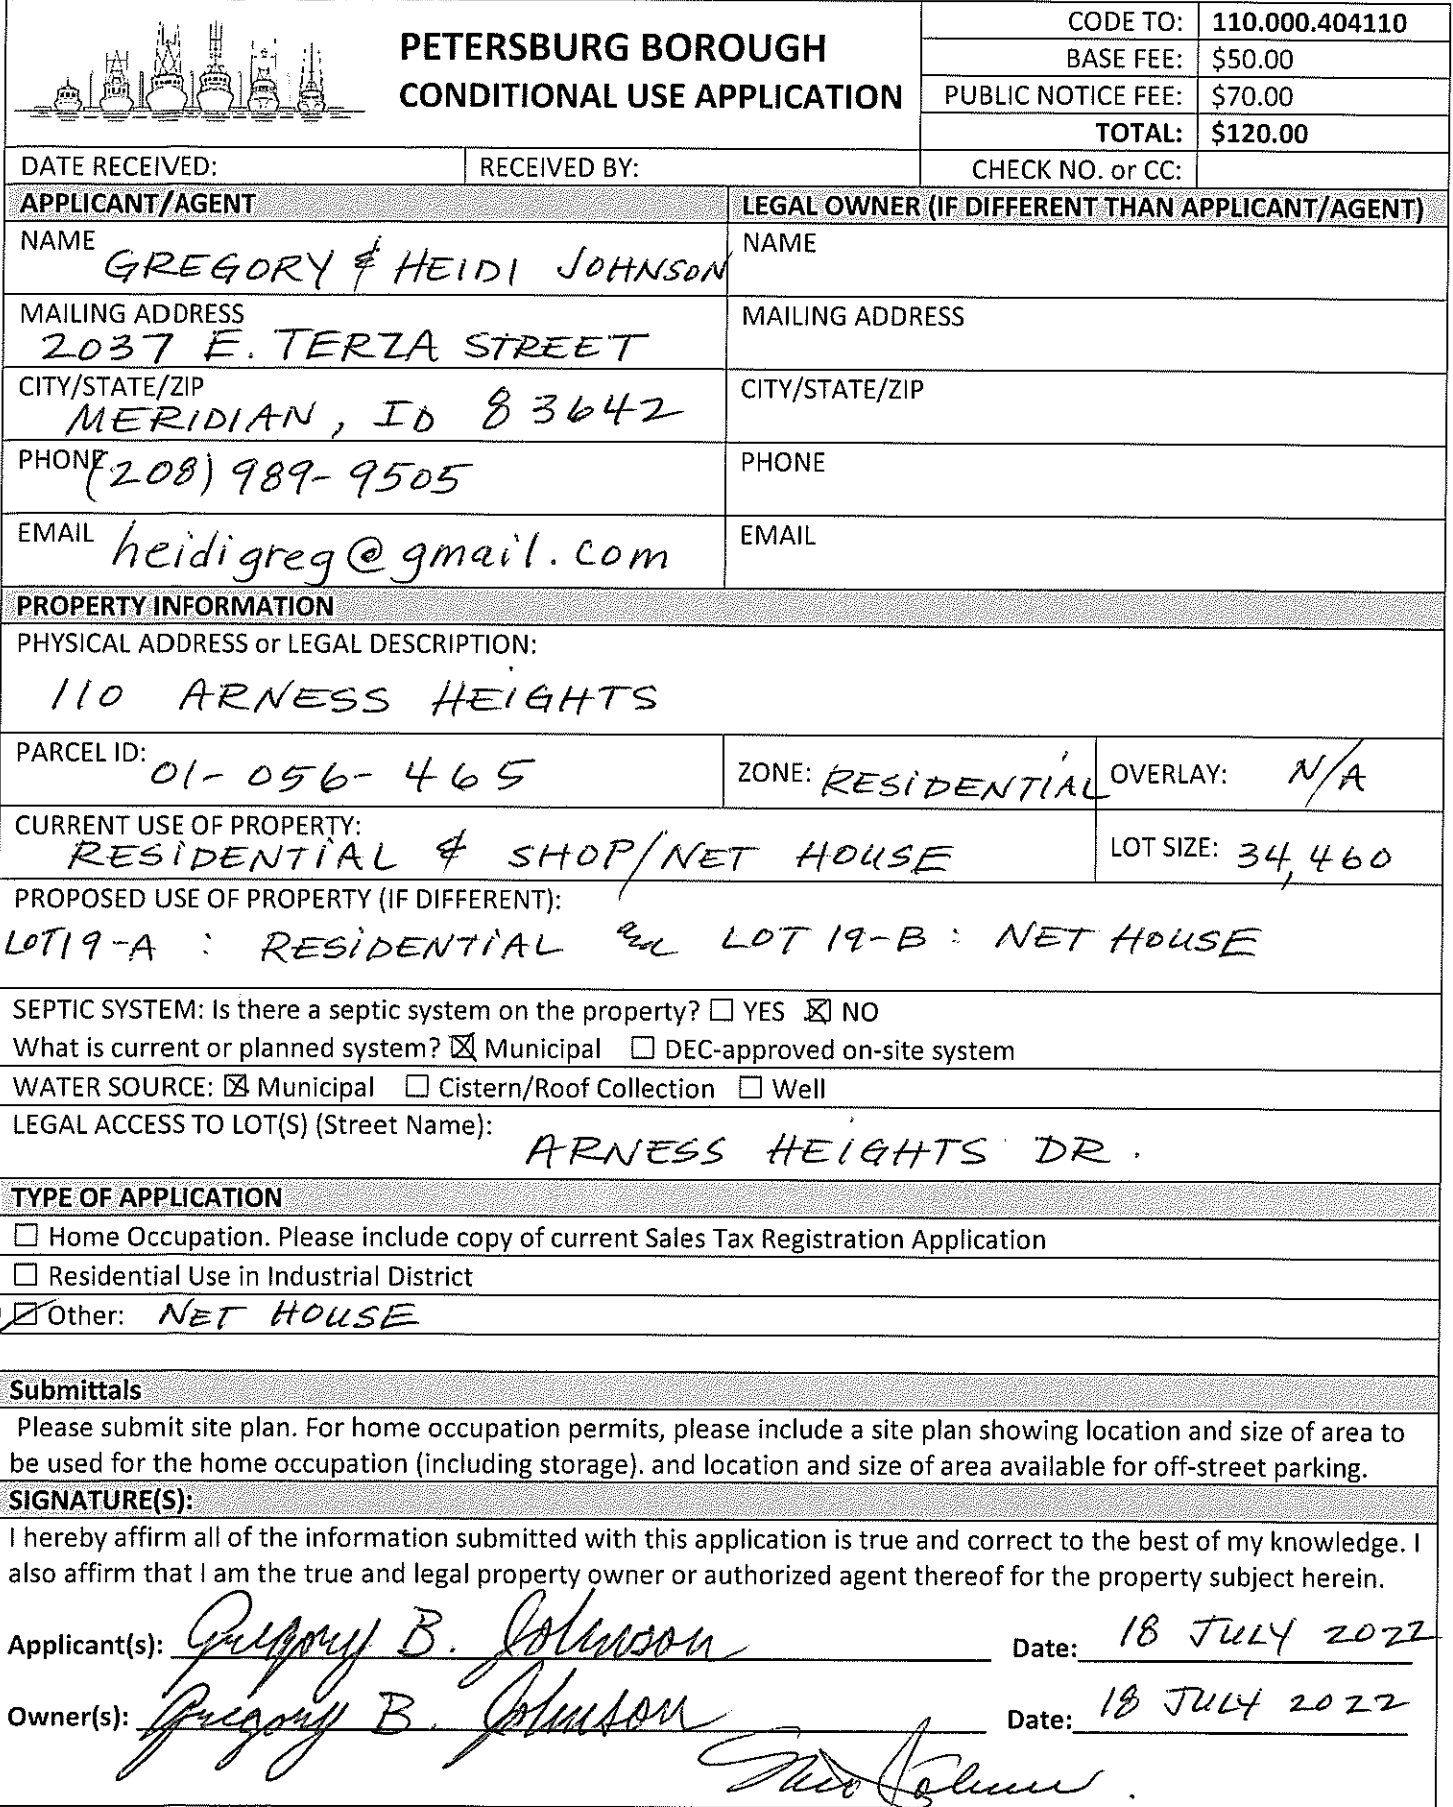 PETERSBURG BOROUGH
CONDITIONAL USE APPLICATION
CODE TO: 110.000.404110
BASE FEE: $50.00
PUBLIC NOTICE FEE: $70.00
TOTAL: $120.00
DATE RECEIVED: RECEIVED BY: CHECK NO. or CC:
APPLICANT/AGENT LEGAL OWNER (IF DIFFERENT THAN APPLICANT/AGENT)
NAME GREGORY & HEIDI JOHNSON NAME
MAILING ADDRESS MAILING ADDRESS
2037 E. TERZA STREET
CITY/STATE/ZIP CITY/STATE/ZIP
MERIDIAN, ID 83642
PHONE (208) 989-9505 PHONE
EMAIL heidigreg@gmail.com EMAIL
PROPERTY INFORMATION
PHYSICAL ADDRESS or LEGAL DESCRIPTION:
110 ARNESS HEIGHTS
PARCEL ID: 01-056-465 ZONE: RESIDENTIAL OVERLAY: N/A
CURRENT USE OF PROPERTY:
RESIDENTIAL & SHOP/NET HOUSE LOT SIZE: 34,460
PROPOSED USE OF PROPERTY (IF DIFFERENT):
LOT 19-A : RESIDENTIAL LOT 19-B : NET HOUSE
SEPTIC SYSTEM: Is there a septic system on the property? ☐ YES ☒ NO
What is current or planned system? ☒ Municipal ☐ DEC-approved on-site system
WATER SOURCE: ☒ Municipal ☐ Cistern/Roof Collection ☐ Well
LEGAL ACCESS TO LOT(S) (Street Name):
ARNESS HEIGHTS DR.
TYPE OF APPLICATION
☐ Home Occupation. Please include copy of current Sales Tax Registration Application
☐ Residential Use in Industrial District
☑ Other: NET HOUSE
Submittals
Please submit site plan. For home occupation permits, please include a site plan showing location and size of area to
be used for the home occupation (including storage). and location and size of area available for off-street parking.
SIGNATURE(S):
I hereby affirm all of the information submitted with this application is true and correct to the best of my knowledge. I
also affirm that I am the true and legal property owner or authorized agent thereof for the property subject herein.
Applicant(s): Gregory B. Johnson Date: 18 JULY 2022
Owner(s): Gregory B. Johnson Date: 18 JULY 2022